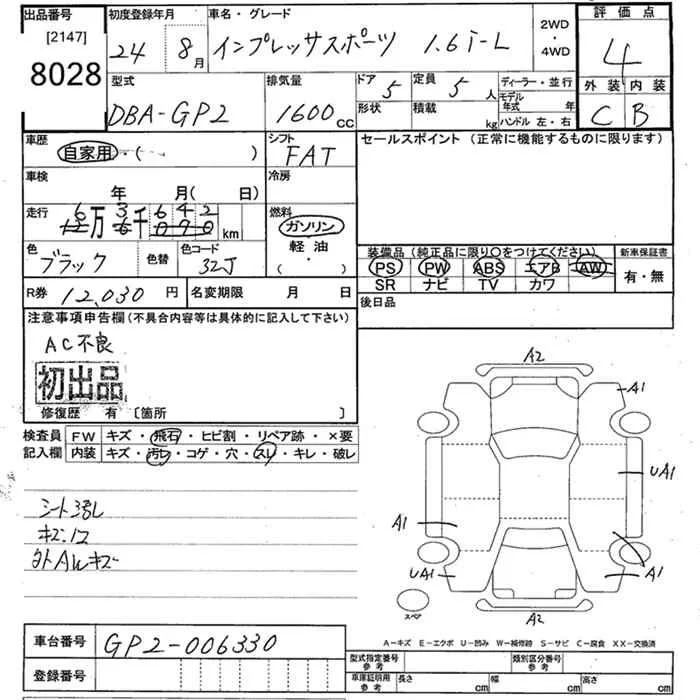 出品番号 初度登録年月 車名・グレード 2WD・4WD 評価点
[2147]
8028 24年 8月 インプレッサスポーツ 1.6 i-L 4
型式 排気量 ドア 5 定員 5人 ディーラー・並行 外装 内装
DBA-GP2 1600cc 形状 積載 kg モデル年式 年 C B
ハンドル 左・右
車歴 シフト セールスポイント (正常に機能するものに限ります)
自家用・( ) FAT
車検 冷房
年 月( 日)
走行 6万3千642km 燃料
ガソリン
軽油
・
( )
色 色替 色コード
ブラック 32J
装備品(純正品に限り○をつけてください) 新車保証書
PS PW ABS エアB AW 有・無
SR ナビ TV カワ
R券 12,030円 名変期限 月 日 後日品
注意事項申告欄(不具合内容等は具体的に記入して下さい)
AC不良
初出品
修復歴 有 〔箇所 〕
検査員 FW キズ・飛石・ヒビ割・リペア跡・×要
記入欄 内装 キズ・汚レ・コゲ・穴・スレ・キレ・破レ
外AWキズ
A2
A1
UA1
A1
UA1
A1
A2
スペア
A-キズ E-エクボ U-凹み W-補修跡 S-サビ C-腐食 XX-交換済
車台番号 GP2-006330
登録番号
型式指定番号 参考 類別区分番号 参考
車庫証明用 参考 長さ cm 幅 cm 高さ cm